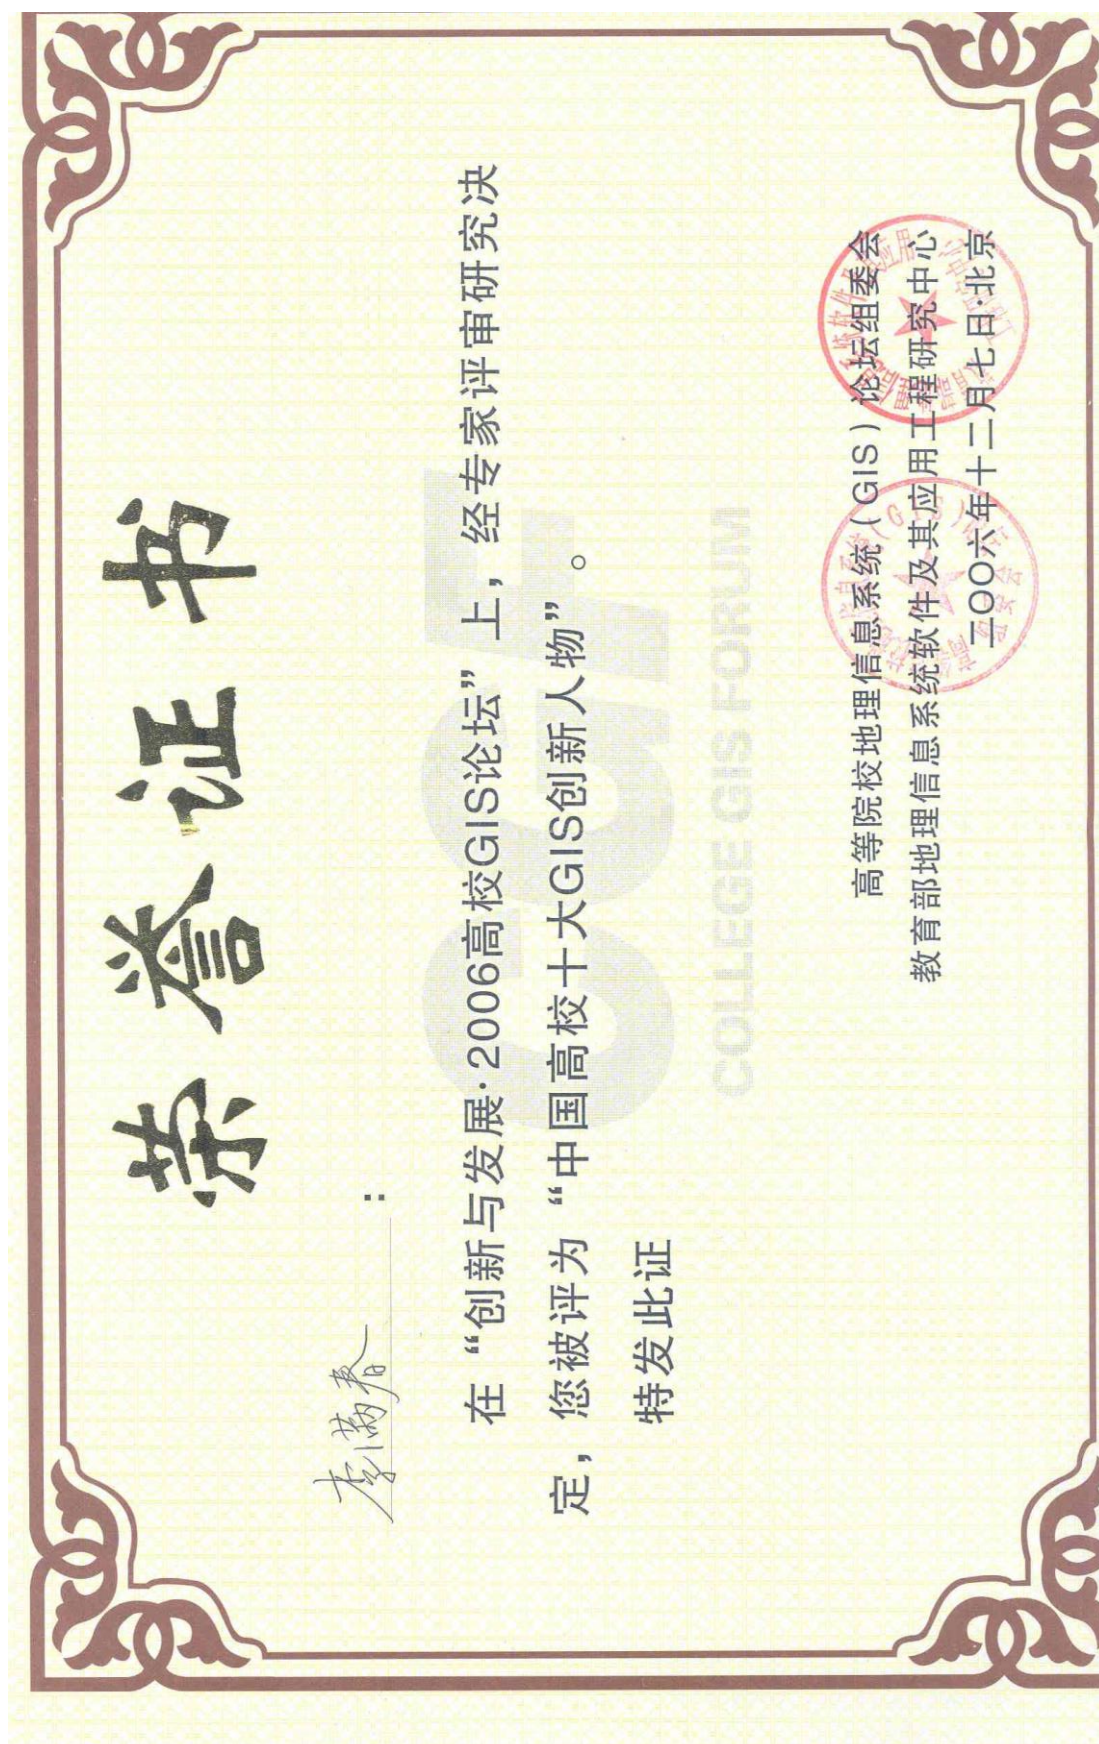 荣誉证书
李满春:
在“创新与发展·2006高校GIS论坛”上，经专家评审研究决
定，您被评为“中国高校十大GIS创新人物”。
特发此证
CGF
COLLEGE GIS FORUM
高等院校地理信息系统(GIS)论坛组委会
教育部地理信息系统软件及其应用工程研究中心
二〇〇六年十二月七日·北京